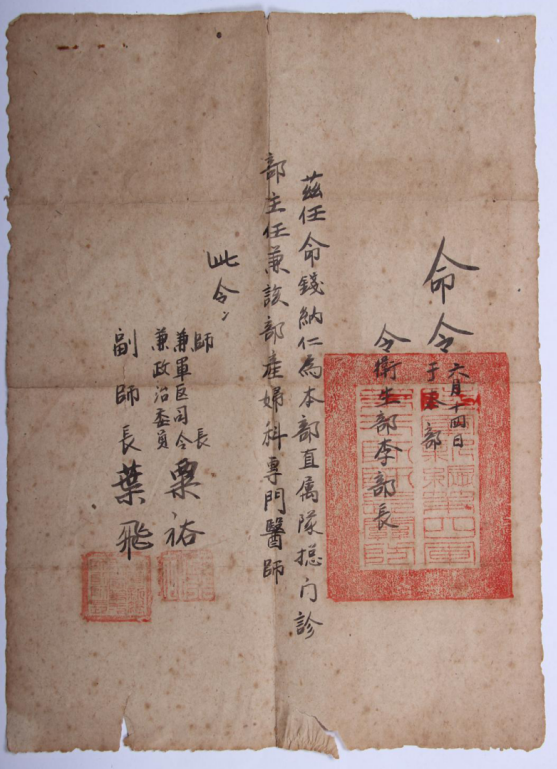 命令 六月十四日
于本部
令衛生部李部長
茲任命錢納仁為本部直属隊總门診
部主任兼該部產婦科專門醫師
此令
師長
兼軍区司令
兼政治委員
粟裕
副師長葉飛